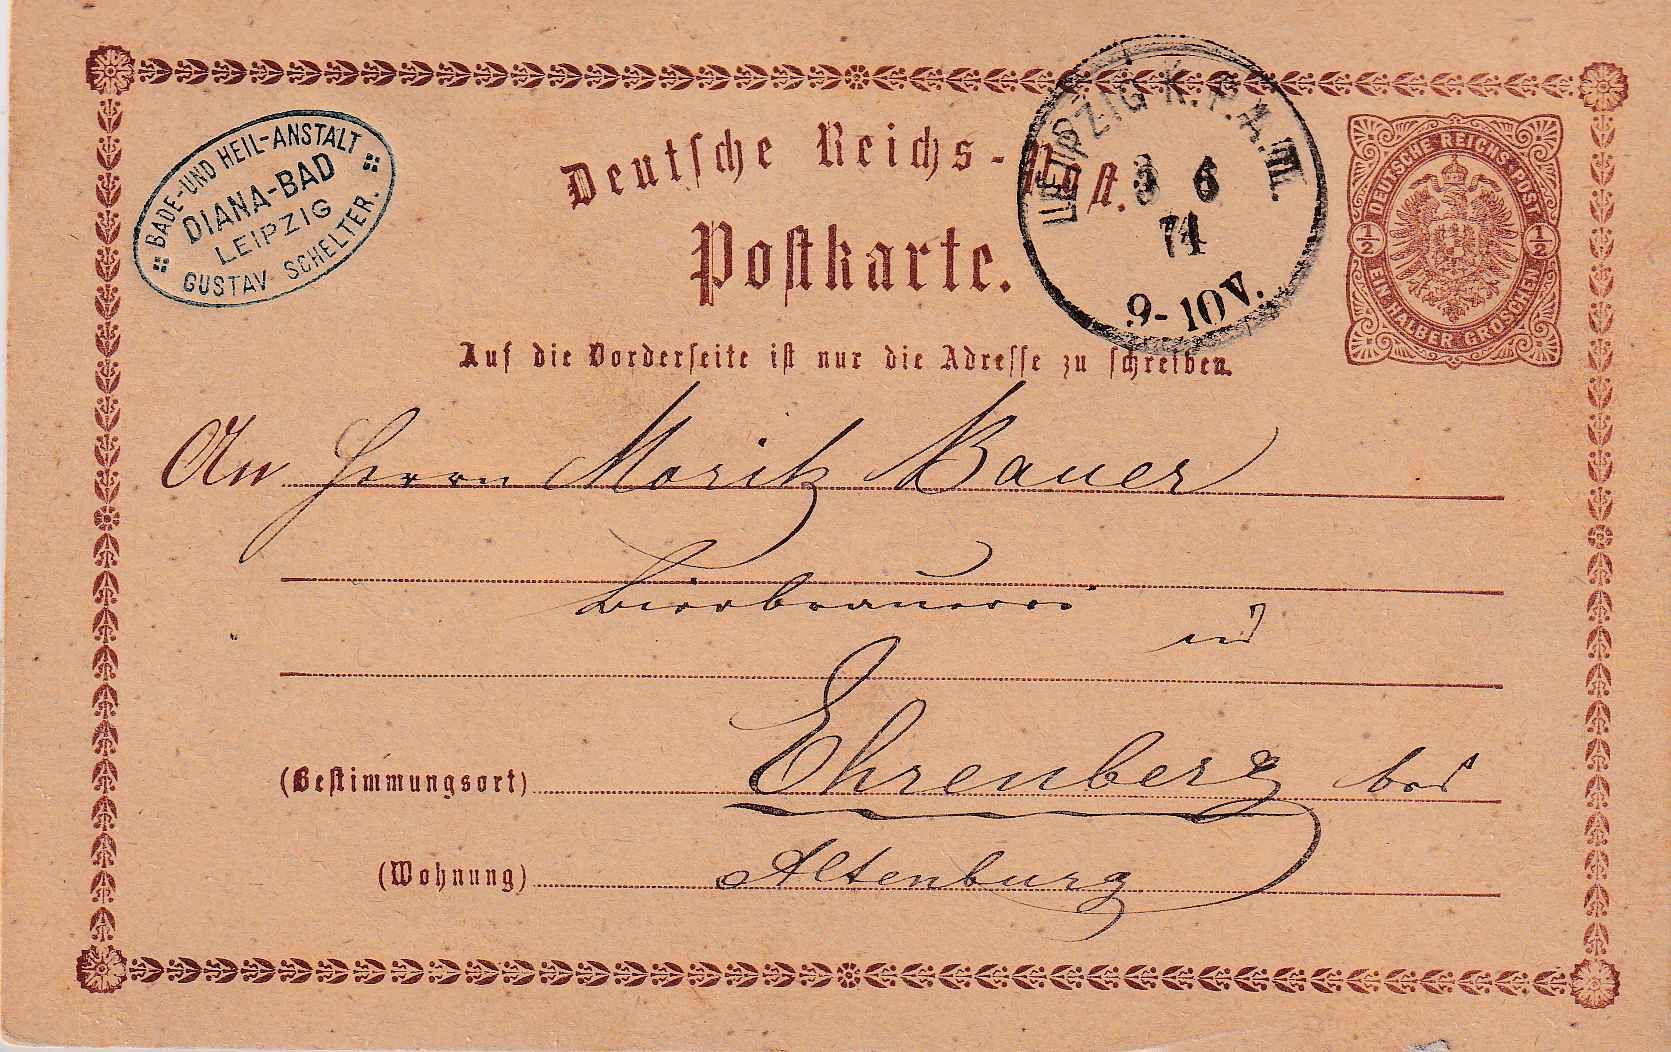 BADE-UND HEIL-ANSTALT
DIANA-BAD
LEIPZIG
GUSTAV SCHELTER.
Deutſche Reichs-Poſt.
Poſtkarte.
LEIPZIG K.P.A.III.
3 6
74
9-10V.
DEUTSCHE REICHS-POST
1/2 1/2
EIN HALBER GROSCHEN
Auf die Vorderſeite iſt nur die Adreſſe zu ſchreiben.
An Herrn Moritz Bauer
Bierbrauerei
in
(Beſtimmungsort) Ehrenberg bei
(Wohnung) Altenburg